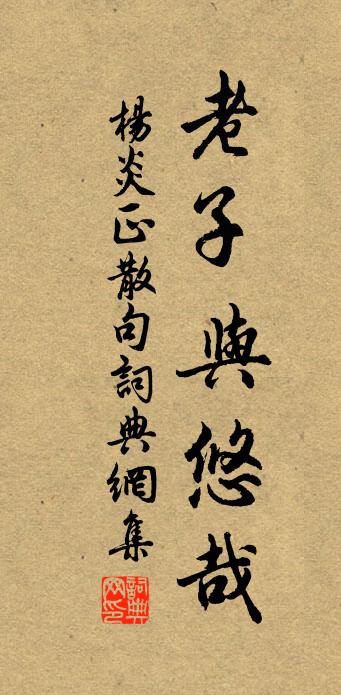 老子興悠哉
楊炎正散句詞典網集
詞典網印